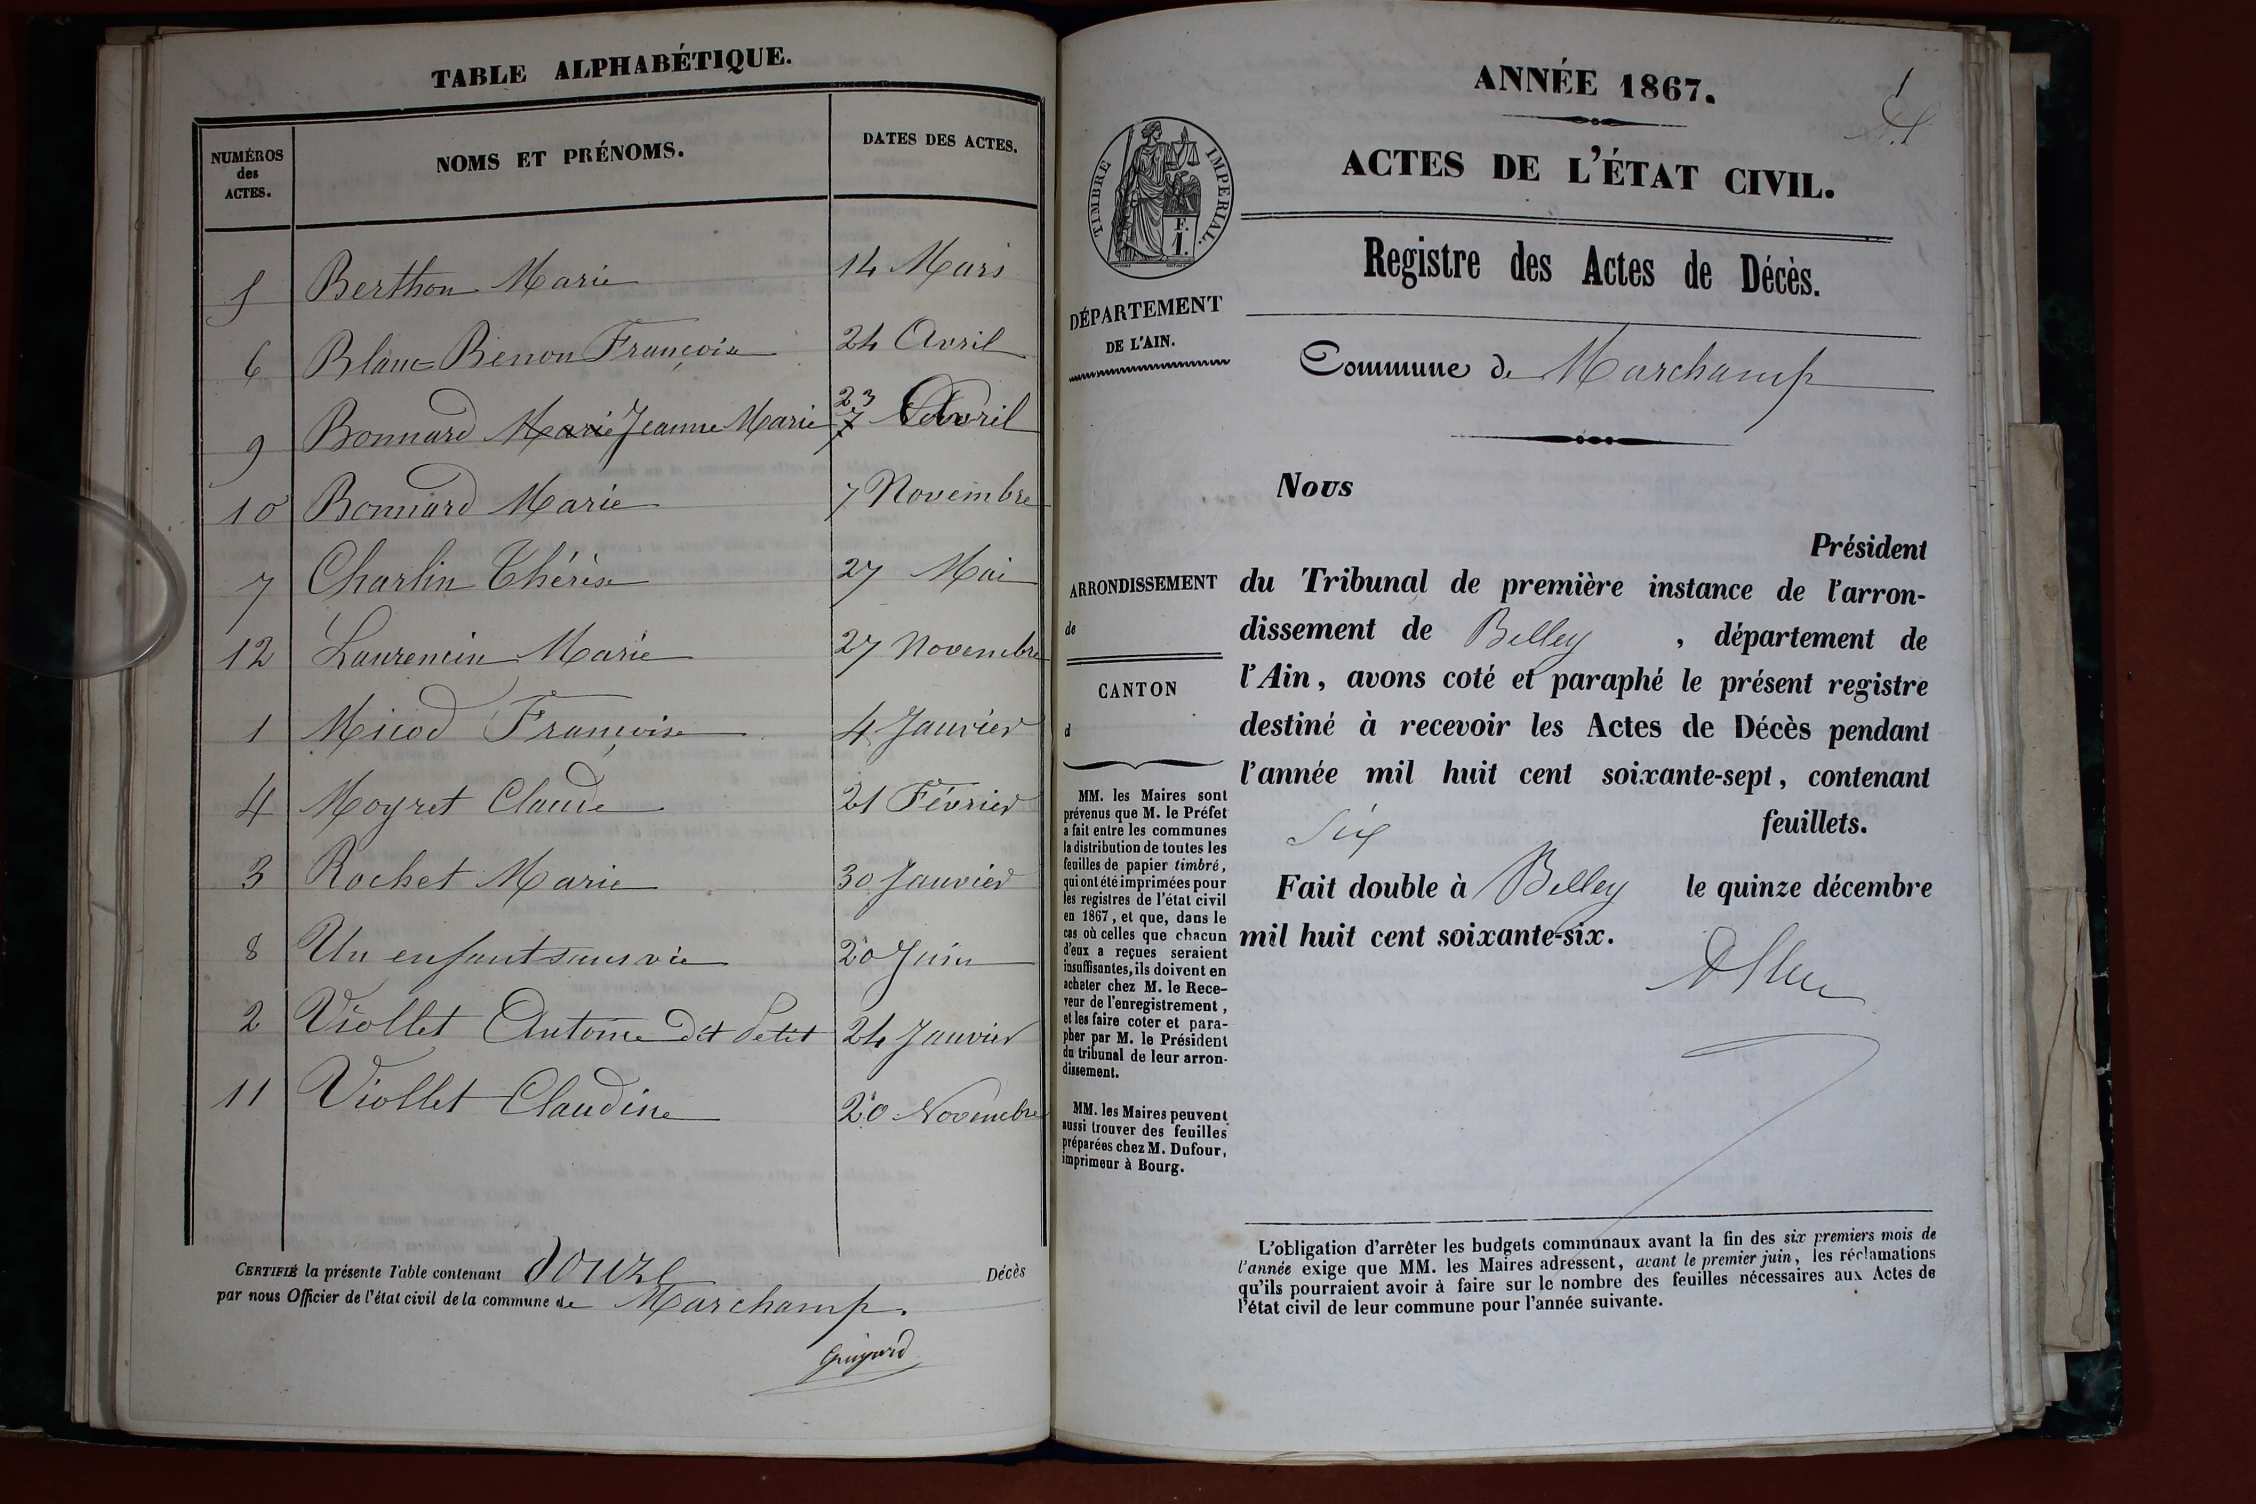 TABLE ALPHABÉTIQUE.
NUMÉROS des ACTES. NOMS ET PRÉNOMS. DATES DES ACTES.
5 Berthon Marie 14 Mars
6 Blanc-Benon François 24 Avril
9 Bonnard Marie Jeanne Marie 7 23 Avril
10 Bonnard Marie 7 Novembre
7 Charlin Thérèse 27 Mai
12 Laurencin Marie 27 Novembre
1 Micod Françoise 4 Janvier
4 Moyret Claude 21 Février
3 Rochet Marie 30 Janvier
8 Un enfant sans vie 20 Juin
2 Viollet Antoine dit Petit 24 Janvier
11 Viollet Claudine 20 Novembre
CERTIFIÉ la présente Table contenant douze Décès
par nous Officier de l'état civil de la commune de Marchamp.
Guigard
1
ANNÉE 1867.
ACTES DE L'ÉTAT CIVIL.
TIMBRE IMPERIAL.
F.
1.
Registre des Actes de Décès.
DÉPARTEMENT
DE L'AIN.
Commune de Marchamp
ARRONDISSEMENT
de
CANTON
d
Nous
Président
du Tribunal de première instance de l'arron-
dissement de Belley , département de
l'Ain, avons coté et paraphé le présent registre
destiné à recevoir les Actes de Décès pendant
l'année mil huit cent soixante-sept, contenant
six feuillets.
Fait double à Belley le quinze décembre
mil huit cent soixante-six.
MM. les Maires sont
prévenus que M. le Préfet
a fait entre les communes
la distribution de toutes les
feuilles de papier timbré,
qui ont été imprimées pour
les registres de l'état civil
en 1867, et que, dans le
cas où celles que chacun
d'eux a reçues seraient
insuffisantes, ils doivent en
acheter chez M. le Rece-
veur de l'enregistrement,
et les faire coter et para-
pher par M. le Président
du tribunal de leur arron-
dissement.
MM. les Maires peuvent
aussi trouver des feuilles
préparées chez M. Dufour,
imprimeur à Bourg.
L'obligation d'arrêter les budgets communaux avant la fin des six premiers mois de
l'année exige que MM. les Maires adressent, avant le premier juin, les réclamations
qu'ils pourraient avoir à faire sur le nombre des feuilles nécessaires aux Actes de
l'état civil de leur commune pour l'année suivante.